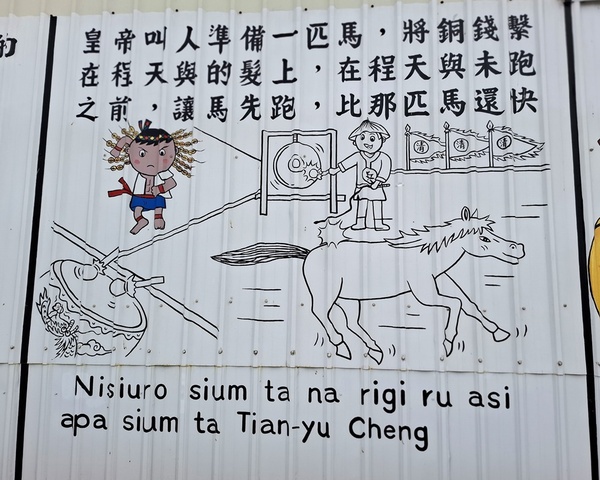 皇帝叫人準備一匹馬，將銅錢繫
在程天與的髮上，在程天與未跑
之前，讓馬先跑，比那匹馬還快
清 清 清
Nisiuro sium ta na rigi ru asi
apa sium ta Tian-yu Cheng